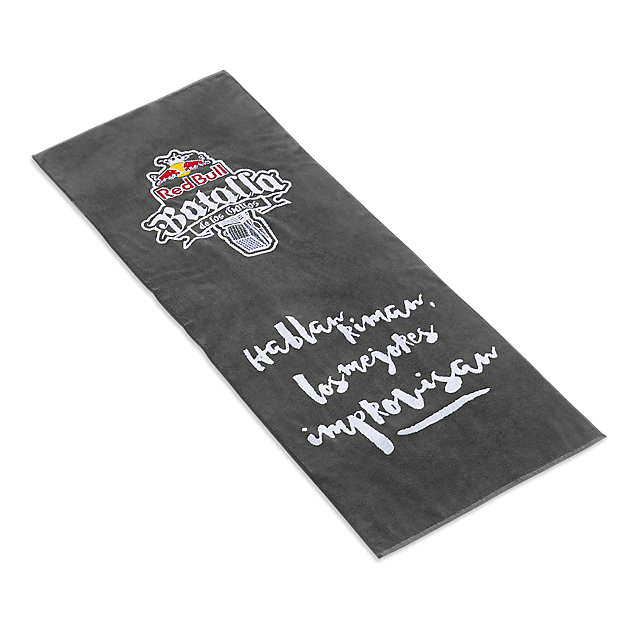 Red Bull
Batalla
de los Gallos
Hablan,
riman,
los mejores
improvisan